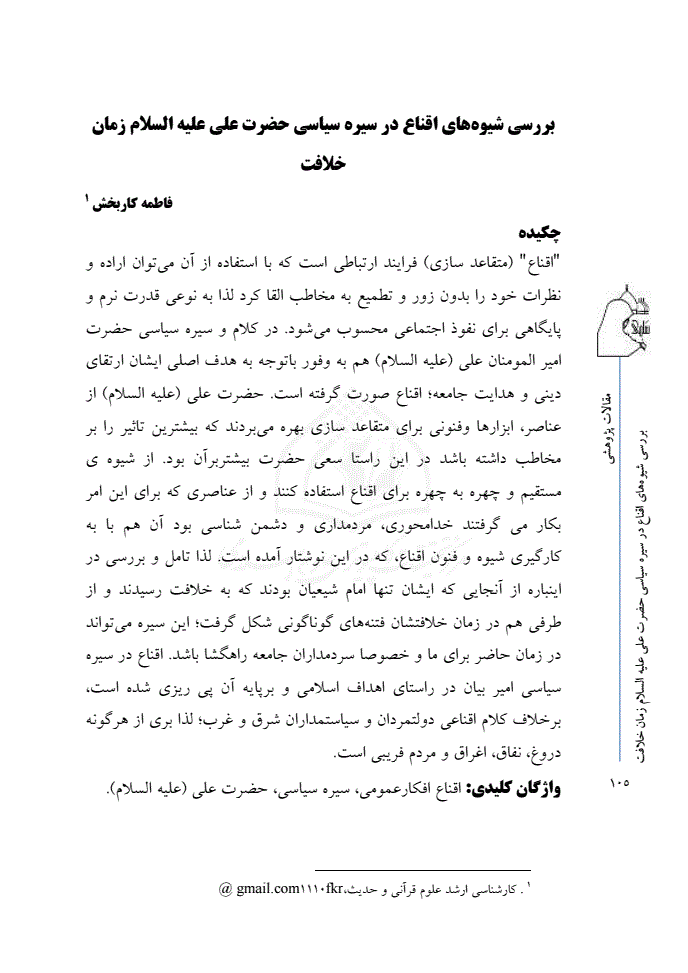 بررسی شیوه‌های اقناع در سیره سیاسی حضرت علی علیه السلام زمان
خلافت
فاطمه کاربخش ۱
چکیده
"اقناع" (متقاعد سازی) فرایند ارتباطی است که با استفاده از آن می‌توان اراده و
نظرات خود را بدون زور و تطمیع به مخاطب القا کرد لذا به نوعی قدرت نرم و
پایگاهی برای نفوذ اجتماعی محسوب می‌شود. در کلام و سیره سیاسی حضرت
امیر المومنان علی (علیه السلام) هم به وفور باتوجه به هدف اصلی ایشان ارتقای
دینی و هدایت جامعه؛ اقناع صورت گرفته است. حضرت علی (علیه السلام) از
عناصر، ابزارها وفنونی برای متقاعد سازی بهره می‌بردند که بیشترین تاثیر را بر
مخاطب داشته باشد در این راستا سعی حضرت بیشتربرآن بود. از شیوه ی
مستقیم و چهره به چهره برای اقناع استفاده کنند و از عناصری که برای این امر
بکار می گرفتند خدامحوری، مردمداری و دشمن شناسی بود آن هم با به
کارگیری شیوه و فنون اقناع، که در این نوشتار آمده است. لذا تامل و بررسی در
اینباره از آنجایی که ایشان تنها امام شیعیان بودند که به خلافت رسیدند و از
طرفی هم در زمان خلافتشان فتنه‌های گوناگونی شکل گرفت؛ این سیره می‌تواند
در زمان حاضر برای ما و خصوصا سردمداران جامعه راهگشا باشد. اقناع در سیره
سیاسی امیر بیان در راستای اهداف اسلامی و برپایه آن پی ریزی شده است،
برخلاف کلام اقناعی دولتمردان و سیاستمداران شرق و غرب؛ لذا بری از هرگونه
دروغ، نفاق، اغراق و مردم فریبی است.
واژگان کلیدی: اقناع افکارعمومی، سیره سیاسی، حضرت علی (علیه السلام).
۱ . کارشناسی ارشد علوم قرآنی و حدیث،fkr۱۱۱۰gmail.com @
مقالات پژوهشی
بررسی شیوه‌های اقناع در سیره سیاسی حضرت علی علیه السلام زمان خلافت
۱۰۵